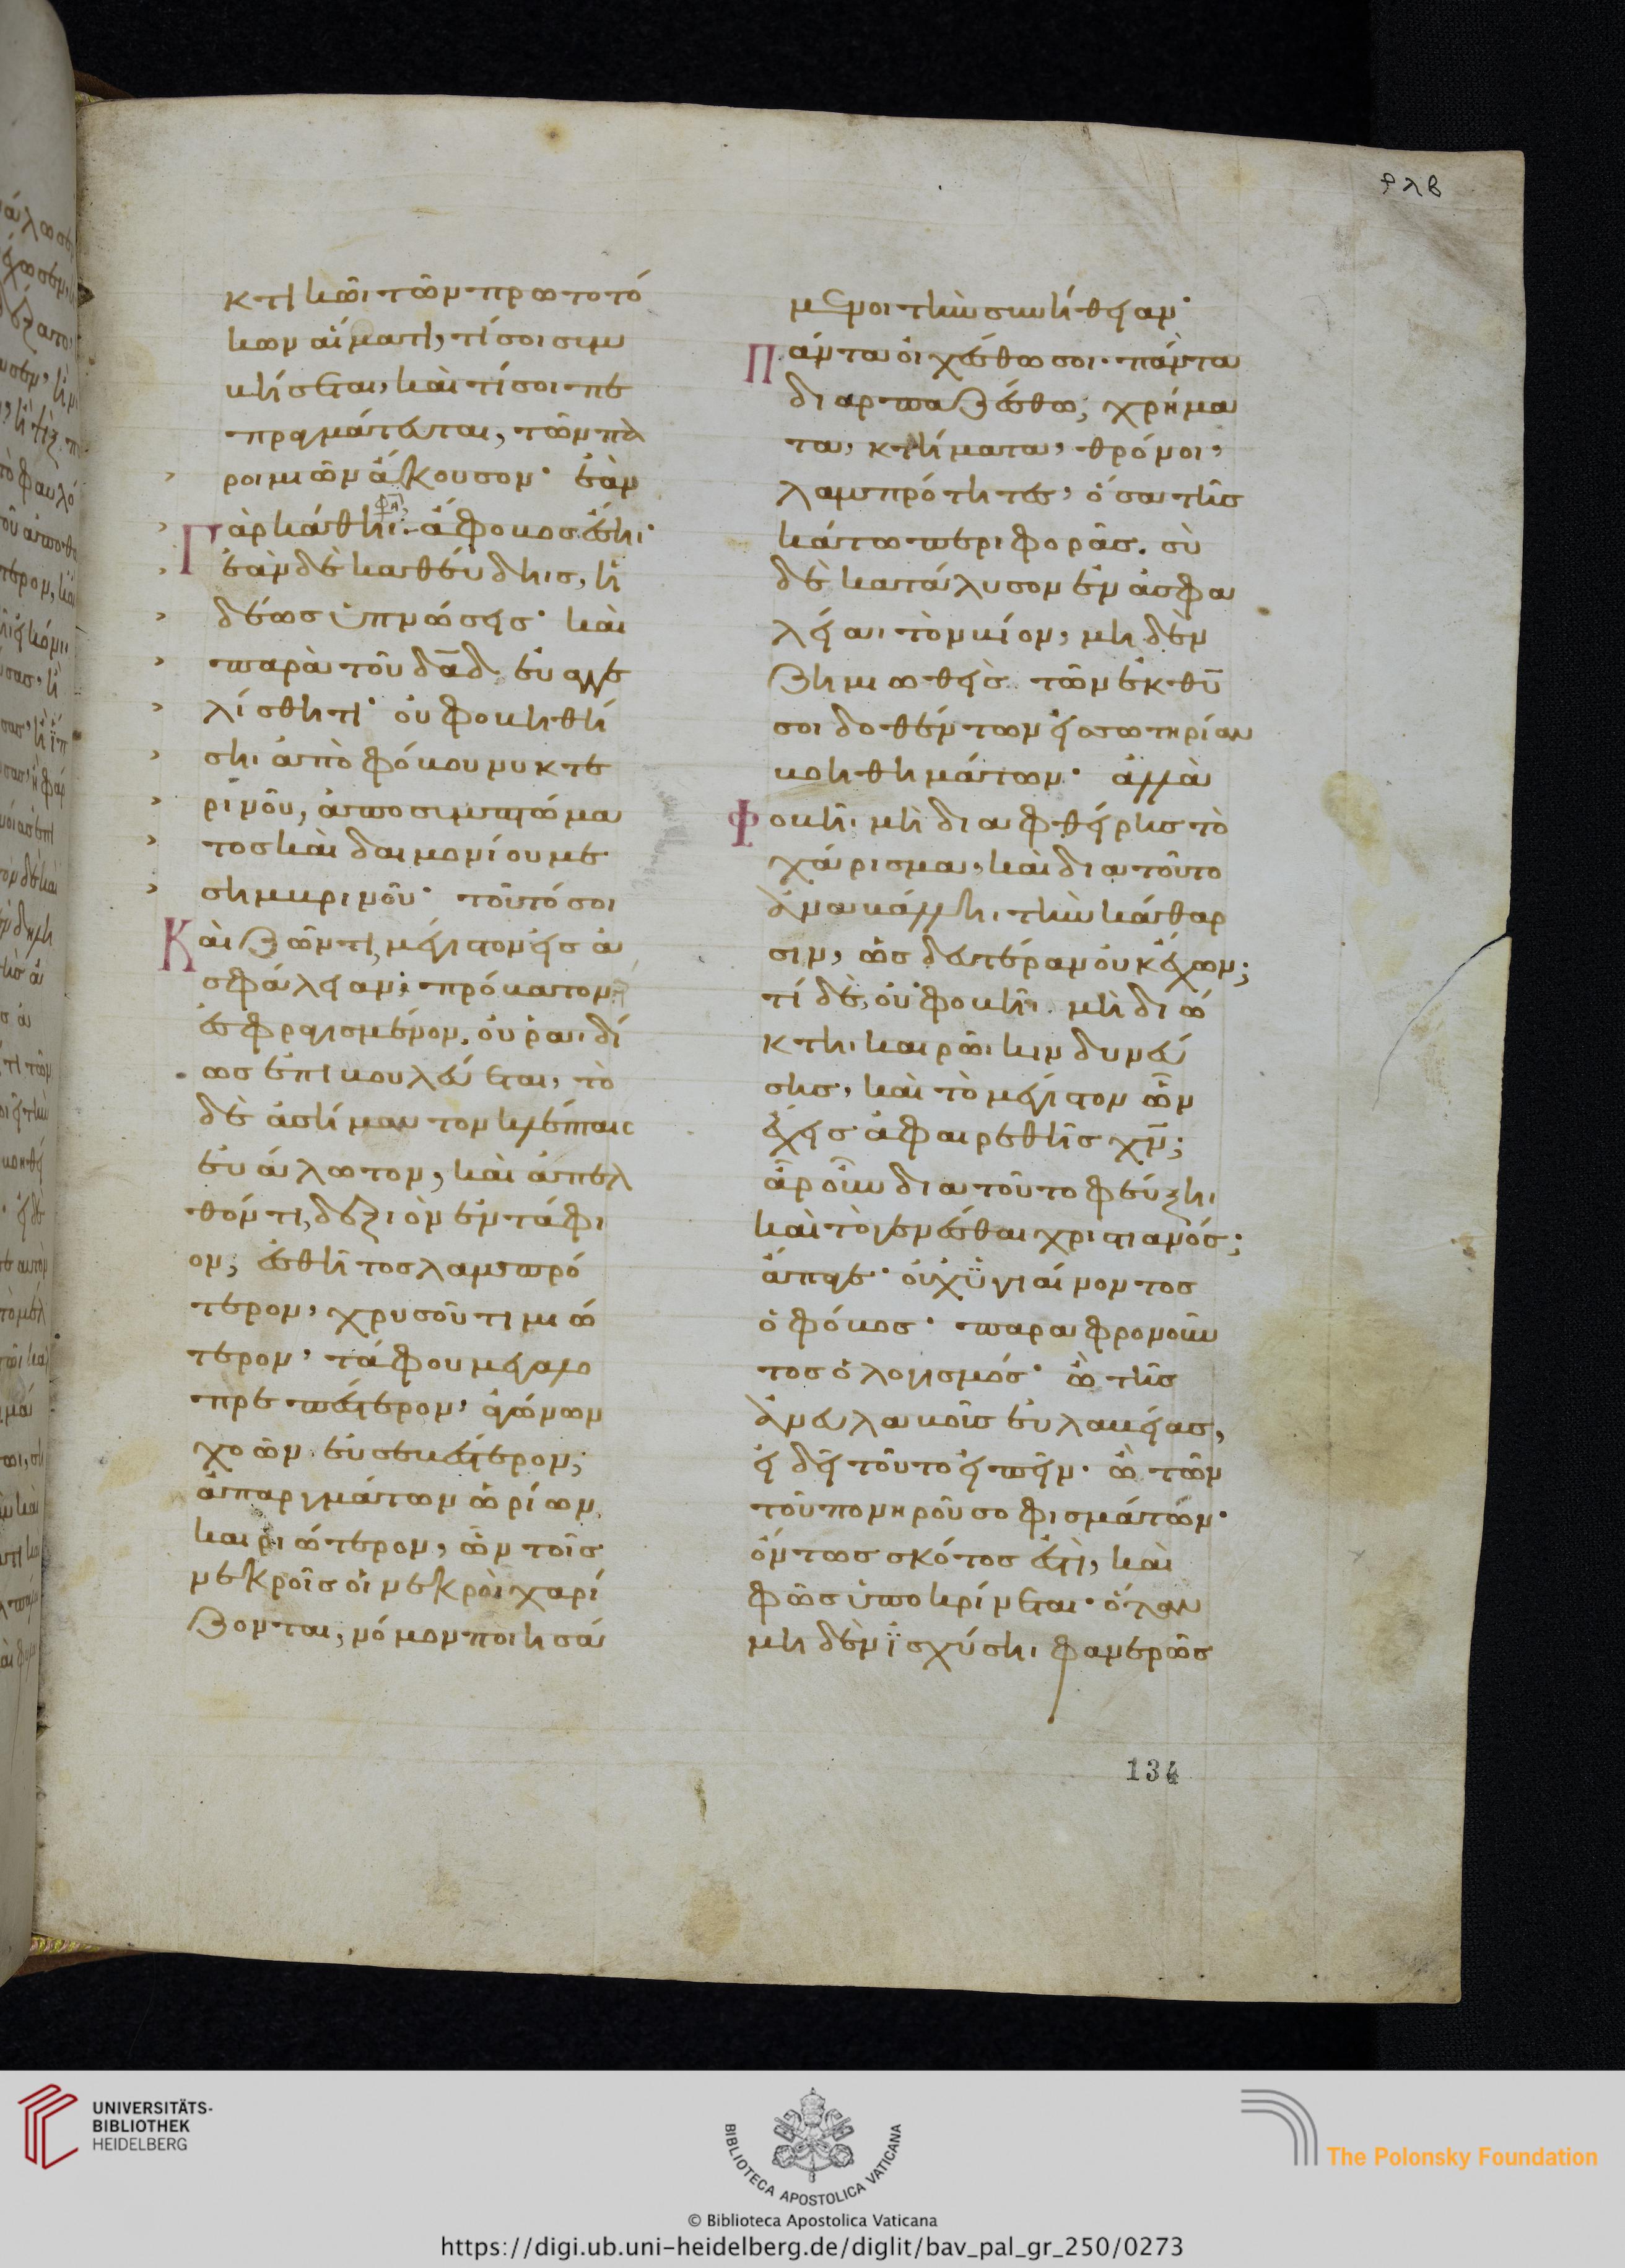 κτικῶι τῶν πρωτοτό
κων αἵματι, τί σοι συμ
βήσεται, καὶ τί σοι πε
πραγμάτευται, τῶν πα
ροιμιῶν ἄκουσον· ἐὰν
γὰρ κάθηι φη, ἄφοβος ἔση·
ἐὰν δὲ καθεύδηις, ἡ
δέως ὑπνώσεις· καὶ
παρὰ τοῦ δᾱδ εὐαγγε
λίσθητι· οὐ φοβηθή
σηι ἀπὸ φόβου νυκτε
ρινοῦ, ἀπο συμπτώμα
τος καὶ δαιμονίου με
σημβρινοῦ· τοῦτό σοι
καὶ ζῶντι, μέγιστον εἰς ἀ
σφάλειαν· πρόβατον
ἐσφραγισμένον, οὐ ῥαιδί
ως ἐπιβουλεύεται, τὸ
δὲ ἀσήμαντον κλέπταις
εὐάλωτον, καὶ ἀπελ
θόντι, δεξιὸν ἐντάφι
ον, ἐσθῆτος λαμπρό
τερον, χρυσοῦ τιμιώ
τερον, τάφου μεγαλο
πρεπέστερον, ἀγόνων
χοῶν εὐσεβέστερον,
ἀπαργμάτων ὡρίων
καιριώτερον, ὧν τοῖς
νεκροῖς οἱ νεκροὶ χαρί
ζονται, νόμον ποιησά
μενοι τὴν συνήθειαν·
πάντα οἰχέσθω σοι· πάντα
διαρπαζέσθω, χρήμα
τα, κτήματα, θρόνοι,
λαμπρότητες, ὅσα τῆς
κάτω περιφορᾶς. σὺ
δὲ κατάλυσον ἐν ἀσφα
λείαι τὸν βίον, μηδὲν
ζημιωθεὶς τῶν ἐκ θῡ
σοι δοθέντων εἰς σωτηρίαν
βοηθημάτων· ἀλλὰ
φοβῆι μὴ διαφθείρηις τὸ
χάρισμα, καὶ διατοῦτο
ἀναβάλληι τὴν κάθαρ
σιν, ὡς δευτέραν οὐκ ἔχων;
τί δὲ, οὐ φοβῆι μὴ διώ
κτηι καιρῶι κινδυνεύ
σηις, καὶ τὸ μέγιστον ὧν
ἔχεις ἀφαιρεθῆις χν̄;
ἆρ οὖν διατοῦτο φεύξηι
καὶ τὸ γενέσθαι χριστιανός;
ἄπαγε· οὐχ ὑγιαίνοντος
ὁ φόβος· παραφρονοῦν
τος ὁ λογισμός· ὢ τῆς
ἀνευλαβοῦς εὐλαβείας,
εἰ δεῖ τοῦτο εἰπεῖν· ὢ τῶν
τοῦ πονηροῦ σοφισμάτων·
ὄντως σκότος ἐστὶ, καὶ
φῶς ὑποκρίνεται· ὅταν
μηδὲν ἰσχύσηι φανερῶς
ρλβ
134
UNIVERSITÄTS-
BIBLIOTHEK
HEIDELBERG
BIBLIOTECA APOSTOLICA VATICANA
The Polonsky Foundation
© Biblioteca Apostolica Vaticana
https://digi.ub.uni-heidelberg.de/diglit/bav_pal_gr_250/0273